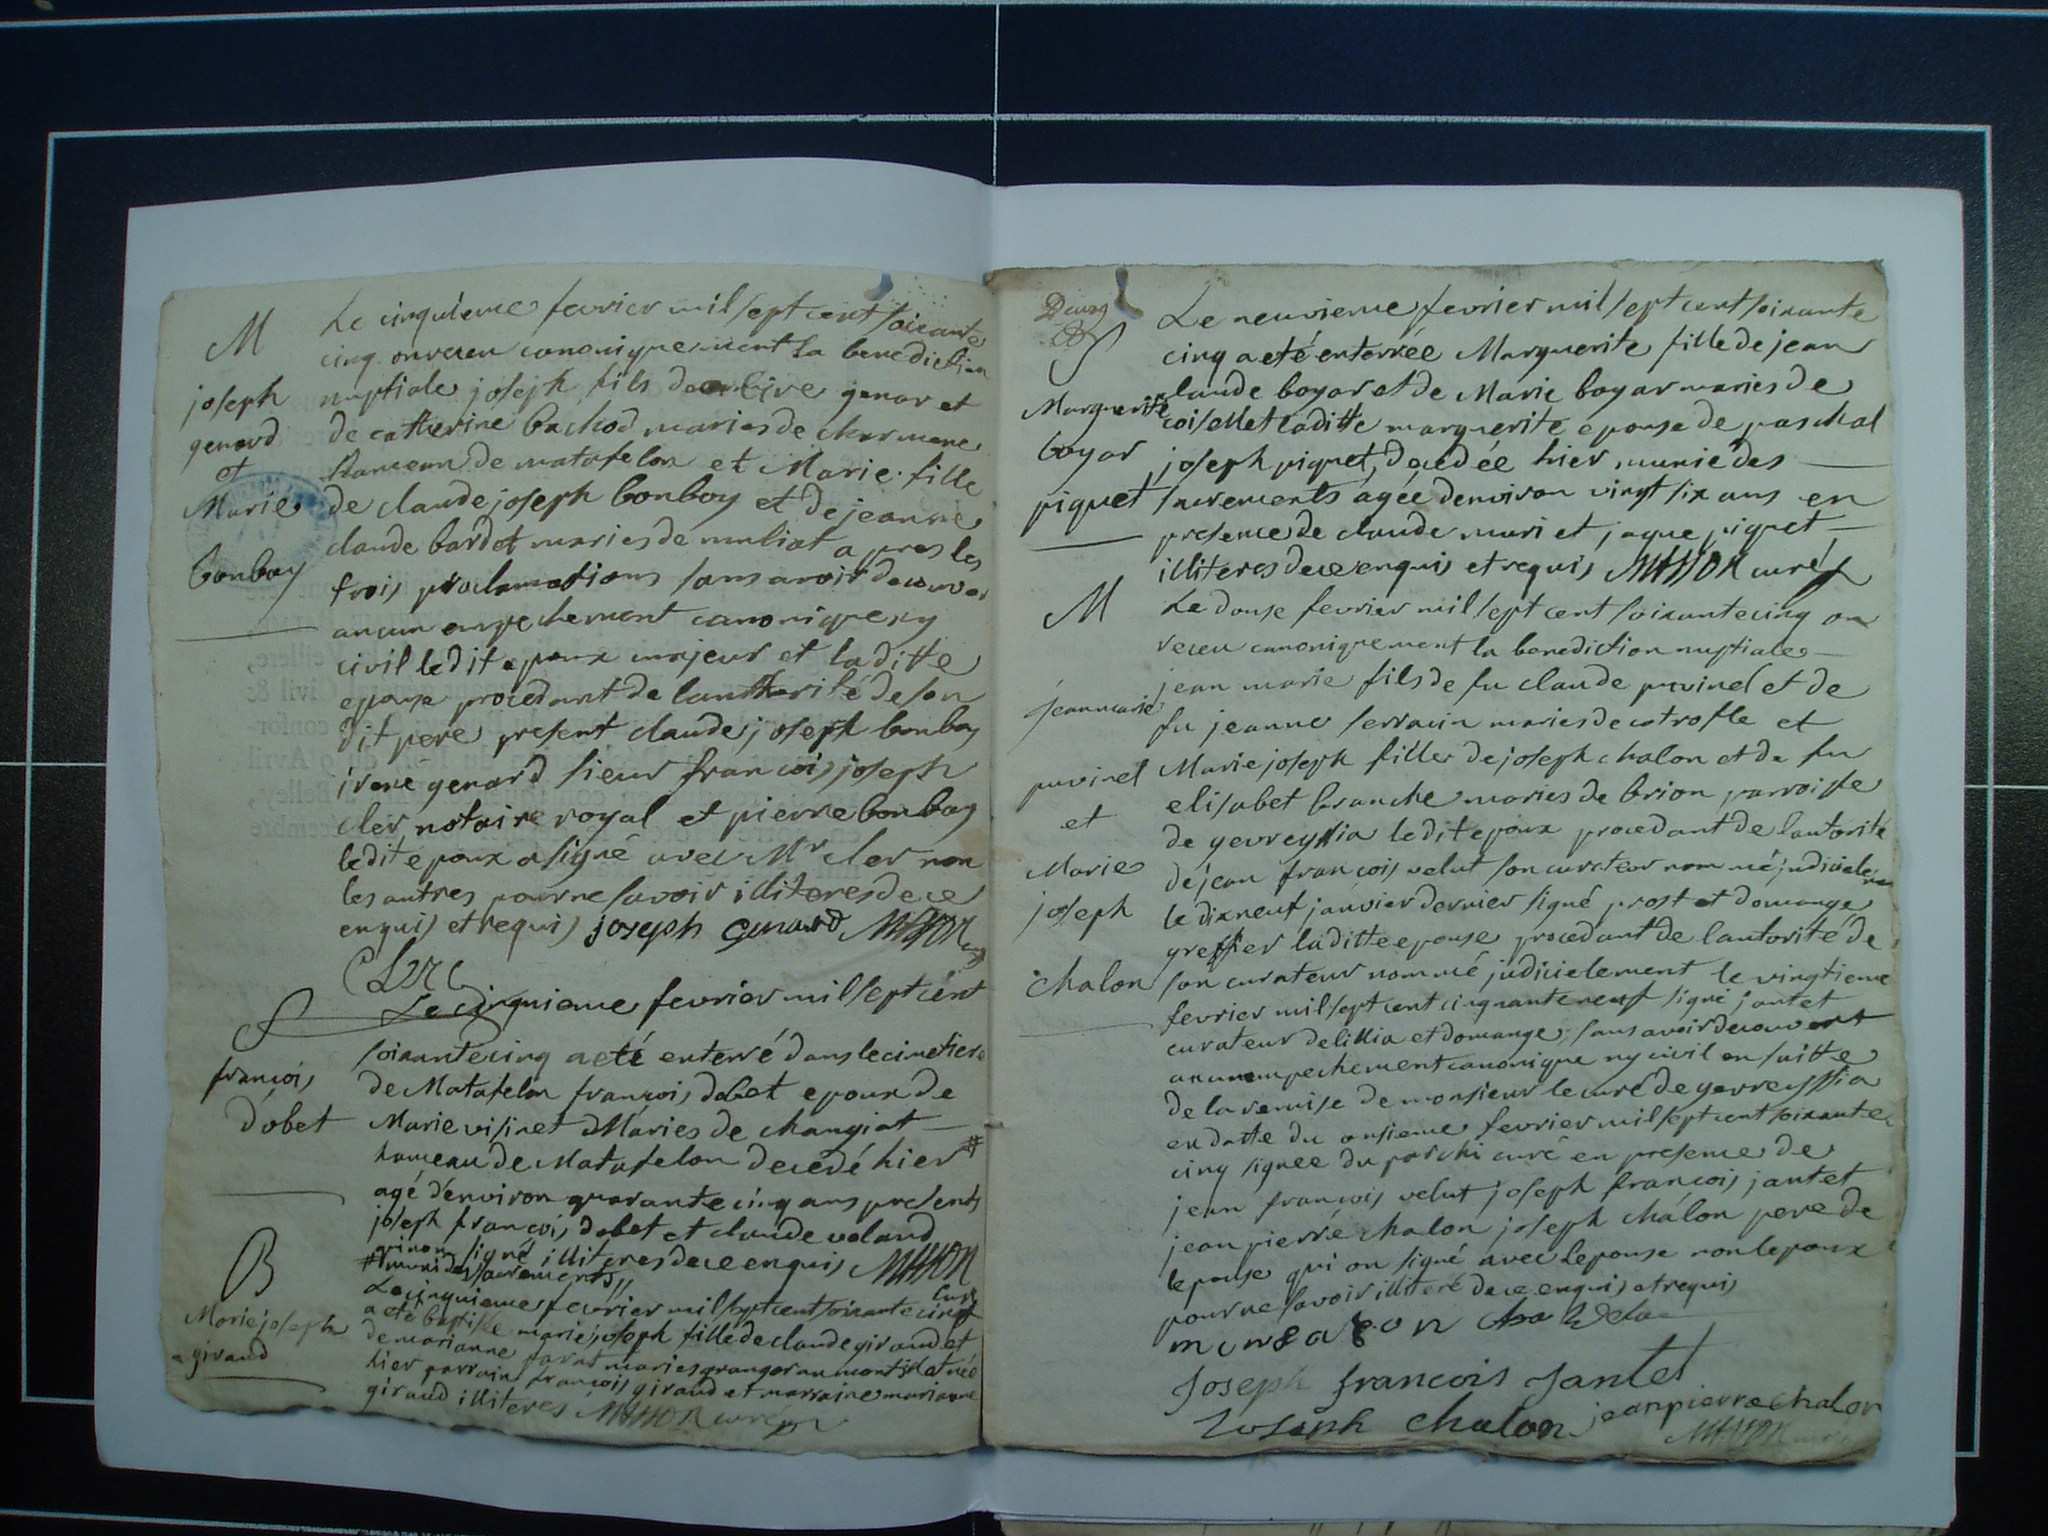 M
joseph
genard
et
Marie
bonboy
Le cinquieme fevrier mil sept cent soixante
cinq on receu canoniquement la benediction
nuptiale joseph fils de genar et
de catherine bachod maries de charmene
hameau de matafelon et Marie fille
de claude joseph bonboy et de jeanne
claude bardet maries de muliat apres les
trois proclamations sans avoir decouver
aucun empechement canonique ny
civil ledit epoux majeur et laditte
epouse procedant de lauttorité de son
dit pere present claude joseph bonboy
irené genard sieur francois joseph
cler notaire royal et pierre bonboy
ledit epoux a signé avec Mr cler non
les autres pour ne savoir illiteres de ce
enquis et requis joseph Genard MASSON curé
Clerc
S
francois
dobet
Le cinquieme fevrier mil sept cent
soixante cinq a eté enterré dans le cimetiere
de Matafelon francois dobet epoux de
Marie visinet Maries de changiat
hameau de Matafelon decedé hier #
agé denviron quarante cinq ans presents
joseph francois dobet et claude voland
signé illiteres de ce enquis MASSON
# muni des sacrements // curé
B
Marie joseph
giraud
Le cinquieme fevrier mil sept cent soixante cinq
a eté baptisée marie joseph fille de claude giraud et
de marianne maries granger au née
hier parrain francois giraud et marraine marianne
giraud illiteres MASSON curé
S
Marguerite
boyar
piquet
Le neuvieme fevrier mil sept cent soixante
cinq a eté enterrée Marguerite fille de jean
claude boyar et de Marie boyar maries de
coisellet laditte marguerite epouse de paschal
joseph piquet, decedée hier munie des
sacrements agée denviron vingt six ans en
presence de claude mari et jaque piquet
illiteres de ce enquis et requis MASSON curé
M
jean marie
puvinel
et
Marie
joseph
chalon
Le douse fevrier mil sept cent soixante cinq on
receu canoniquement la benediction nuptiale
jean marie fils de fu claude puvinel et de
fu jeanne serracin maries de cotrofle et
Marie joseph fille de joseph chalon et de fu
elisabet branche maries de brion parroisse
de gevreyssia ledit epoux procedant de lautorité
de jean francois velut son curateur nommé judiciele
le dixneuf janvier dernier signé prost et domange
greffier laditte epouse procedant de lautorité de
son curateur nommé judicielement le vingtieme
fevrier mil sept cent cinquante neuf signé jantet
curateur delillia et domange, sans avoir decouvert
aucun empechement canonique ny civil en suitte
de la remise de monsieur le curé de gevreyssia
en datte du onsieme fevrier mil sept cent soixante
cinq signee du parchi curé en presence de
jean francois velut joseph francois jantet
jean pierre chalon joseph chalon pere de
lepouse qui on signé avec lepouse non lepoux
pour ne savoir illiteré de ce enquis et requis
Joseph francois Jantet
Joseph chalon jean pierre chalon
MASSON curé